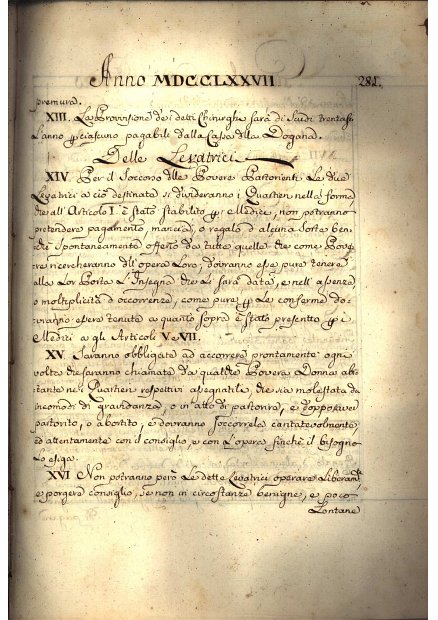 Anno MDCCLXXVII 281.
premura.
XIII. La Provisione de i detti Chirurghi sarà di Scudi trentasei
l'anno per ciascuno pagabili dalla Cassa della Dogana.
Delle Levatrici
XIV Per il Soccorso delle Povere Partorienti Le due
Levatrici a ciò destinate si divideranno i Quartieri nella forma
che all'Articolo I. è stato stabilito per i Medici, non potranno
pretendere pagamento, mancia, o regalo d'alcuna sorta ben
che spontaneamente offerto da tutte quelle che come Pove
re ricercheranno dell'opera Loro; dovranno esse pure tenere
alla Lor Porta L'Insegna che Li sarà data, e nell'assenza
o moltiplicità d'occorrenze, come pure per Le conferme do
vranno essere tenute a quanto sopra è stato prescritto per i
Medici a gli Articoli V e VII.
XV Saranno obbligate ad accorrere prontamente ogni
volta che saranno chiamate da qualche Povera Donna abi
tante nei Quartieri respettivi assegnatili, che sia molestata da
incomodi di gravidanza, o in atto di partorire, e doppo aver
partorito, o abortito, e dovranno soccorrela caritatevolmente
ed attentamente con il consiglio, e con l'opera finchè il bisogno
Lo esiga.
XVI Non potranno però Le dette Levatrici operare Liberamte
e porgere consiglio, se non in circostanze benigne, e poco
Lontane